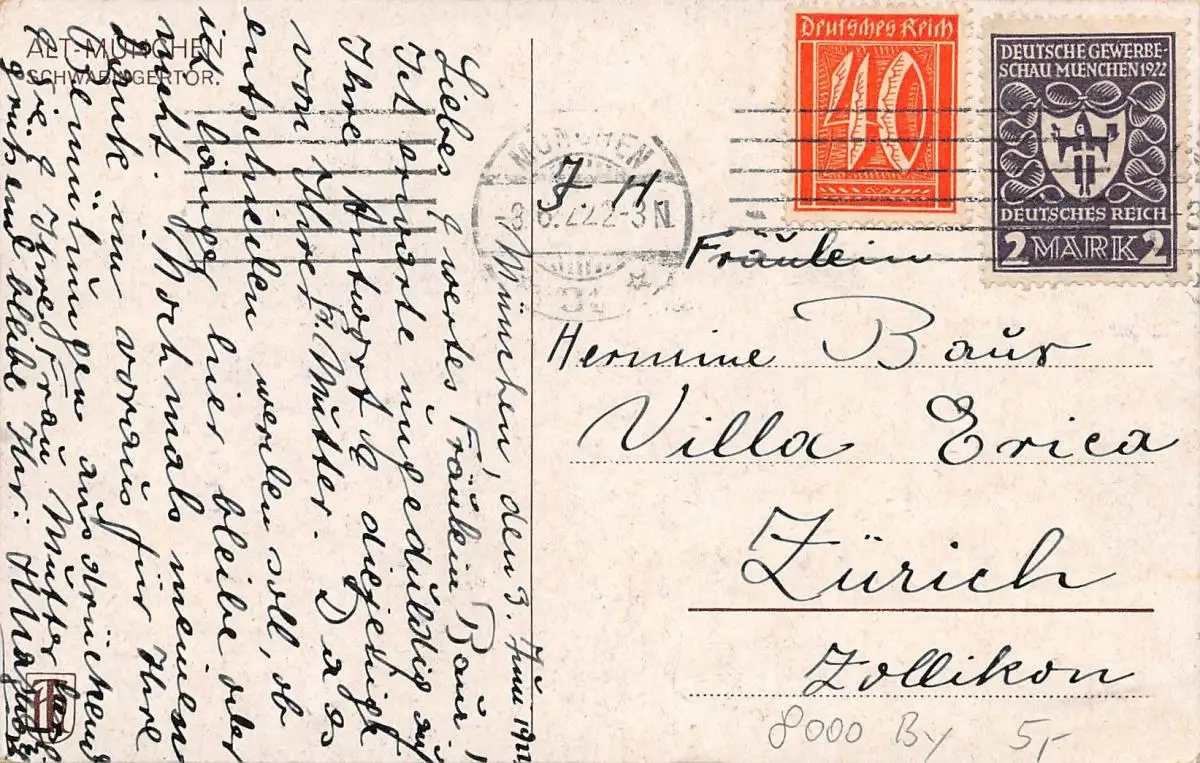 ALT-MÜNCHEN
SCHWABINGERTOR.
München, den 3. Juni 1922
Liebes & wertes Fräulein Baur!
Ich erwarte ungeduldig auf
Ihre Antwort & diejenige
von Ihrer Fr. Mutter. Da es
entschieden werden soll, ob
ich länger hier bleibe oder
nicht. Nochmals meinen
Dank im voraus für Ihre
Bemühungen ausdrückend
& Sie & Ihre Frau Mutter
grüßend bleibe Ihr:
MÜNCHEN
3.6.22 2-3N
31
J H
Deutsches Reich
40
DEUTSCHE GEWERBE-
SCHAU MUENCHEN 1922
DEUTSCHES REICH
2 MARK 2
Fräulein
Hermine Baur
Villa Erica
Zürich
Zollikon
8000 By 5,-